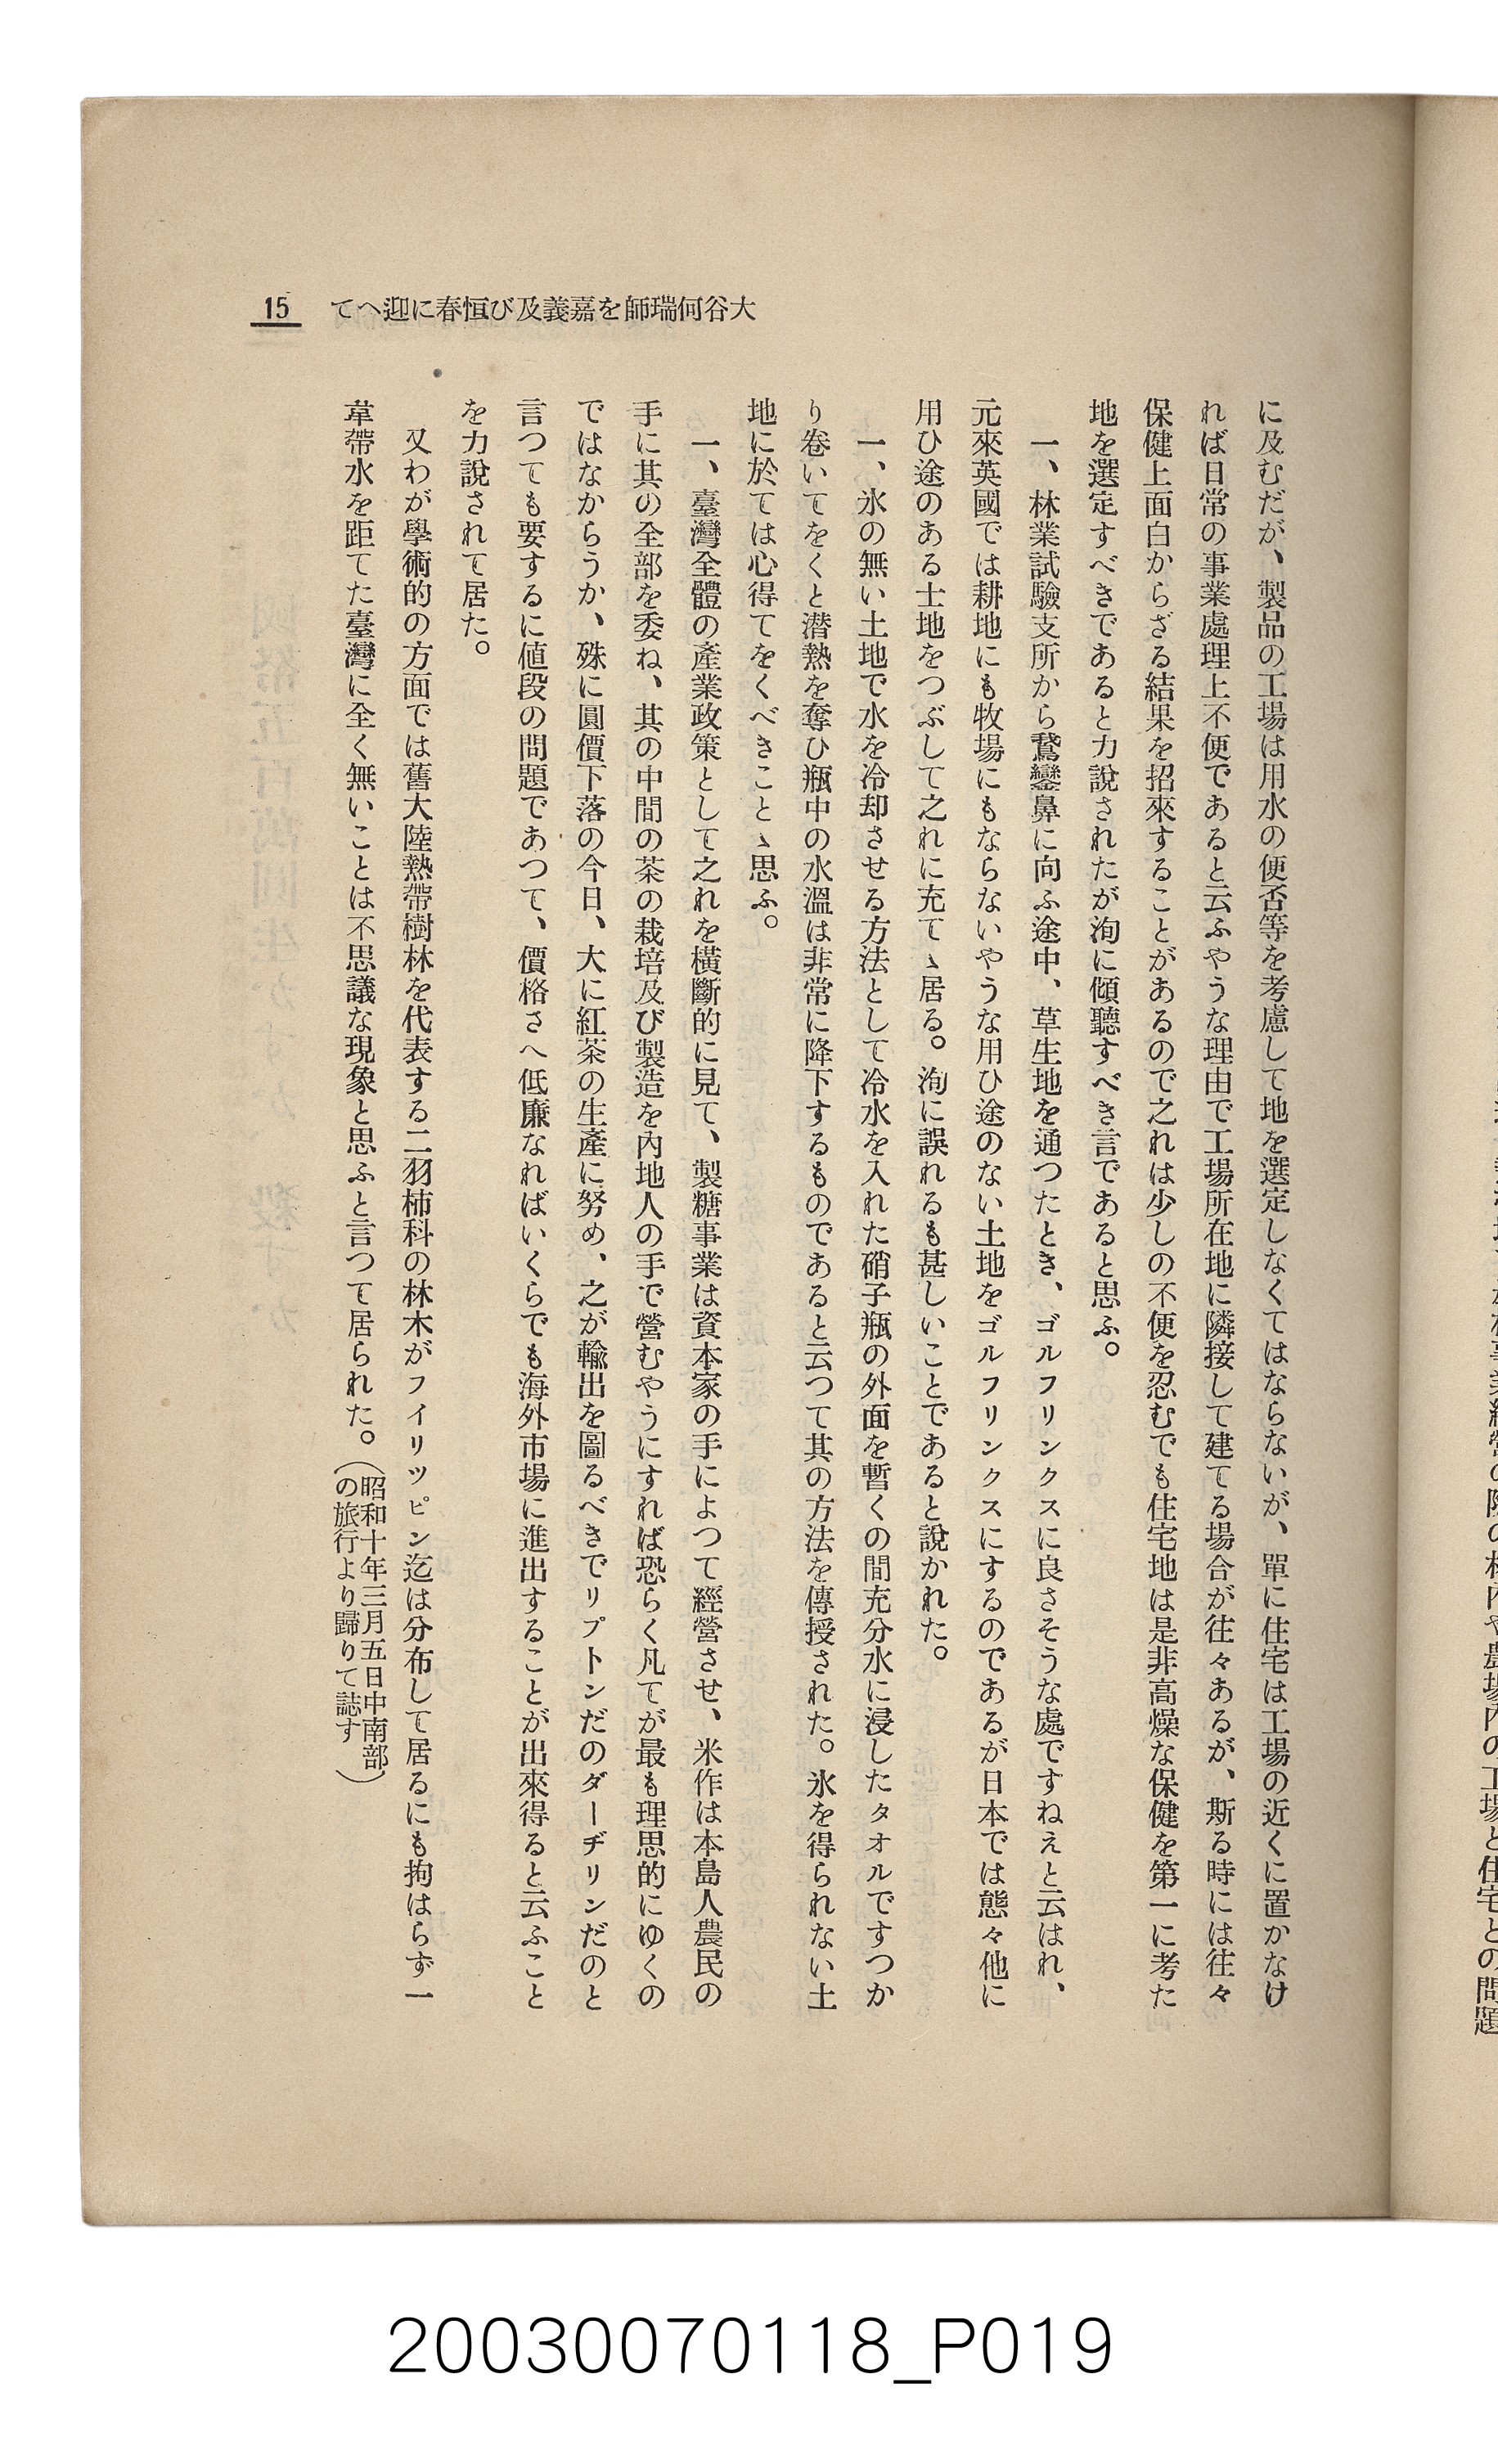 大谷伺瑞師を嘉義及び恒春に迎へて
15
に及むだが、製品の工場は用水の便否等を考慮して地を選定しなくてはならないが、單に住宅は工場の近くに置かなけ
れば日常の事業處理上不便であると云ふやうな理由で工場所在地に隣接して建てる場合が往々あるが、斯る時には往々
保健上面白からざる結果を招來することがあるので之れは少しの不便を忍むでも住宅地は是非高燥な保健を第一に考た
地を選定すべきであると力說されたが洵に傾聽すべき言であると思ふ。
一、林業試驗支所から鵞鑾鼻に向ふ途中、草生地を通つたとき、ゴルフリンクスに良さそうな處ですねえと云はれ、
元來英國では耕地にも牧場にもならないやうな用ひ途のない土地をゴルフリンクスにするのであるが日本では態々他に
用ひ途のある土地をつぶして之れに充てゝ居る。洵に誤れるも甚しいことであると說かれた。
一、氷の無い土地で水を冷却させる方法として冷水を入れた硝子瓶の外面を暫くの間充分水に浸したタオルですつか
り卷いてをくと潜熱を奪ひ瓶中の水溫は非常に降下するものであると云つて其の方法を傳授された。氷を得られない土
地に於ては心得てをくべきことゝ思ふ。
一、臺灣全體の產業政策として之れを橫斷的に見て、製糖事業は資本家の手によつて經營させ、米作は本島人農民の
手に其の全部を委ね、其の中間の茶の栽培及び製造を內地人の手で營むやうにすれば恐らく凡てが最も理思的にゆくの
ではなからうか、殊に圓價下落の今日、大に紅茶の生產に努め、之が輸出を圖るべきでリプトンだのダーヂリンだのと
言つても要するに値段の問題であつて、價格さへ低廉なればいくらでも海外市場に進出することが出來得ると云ふこと
を力說されて居た。
又わが學術的の方面では舊大陸熱帶樹林を代表する二羽柿科の林木がフイリツピン迄は分布して居るにも拘はらず一
葦帶水を距てた臺灣に全く無いことは不思議な現象と思ふと言つて居られた。（昭和十年三月五日中南部
の旅行より歸りて誌す）
20030070118_P019